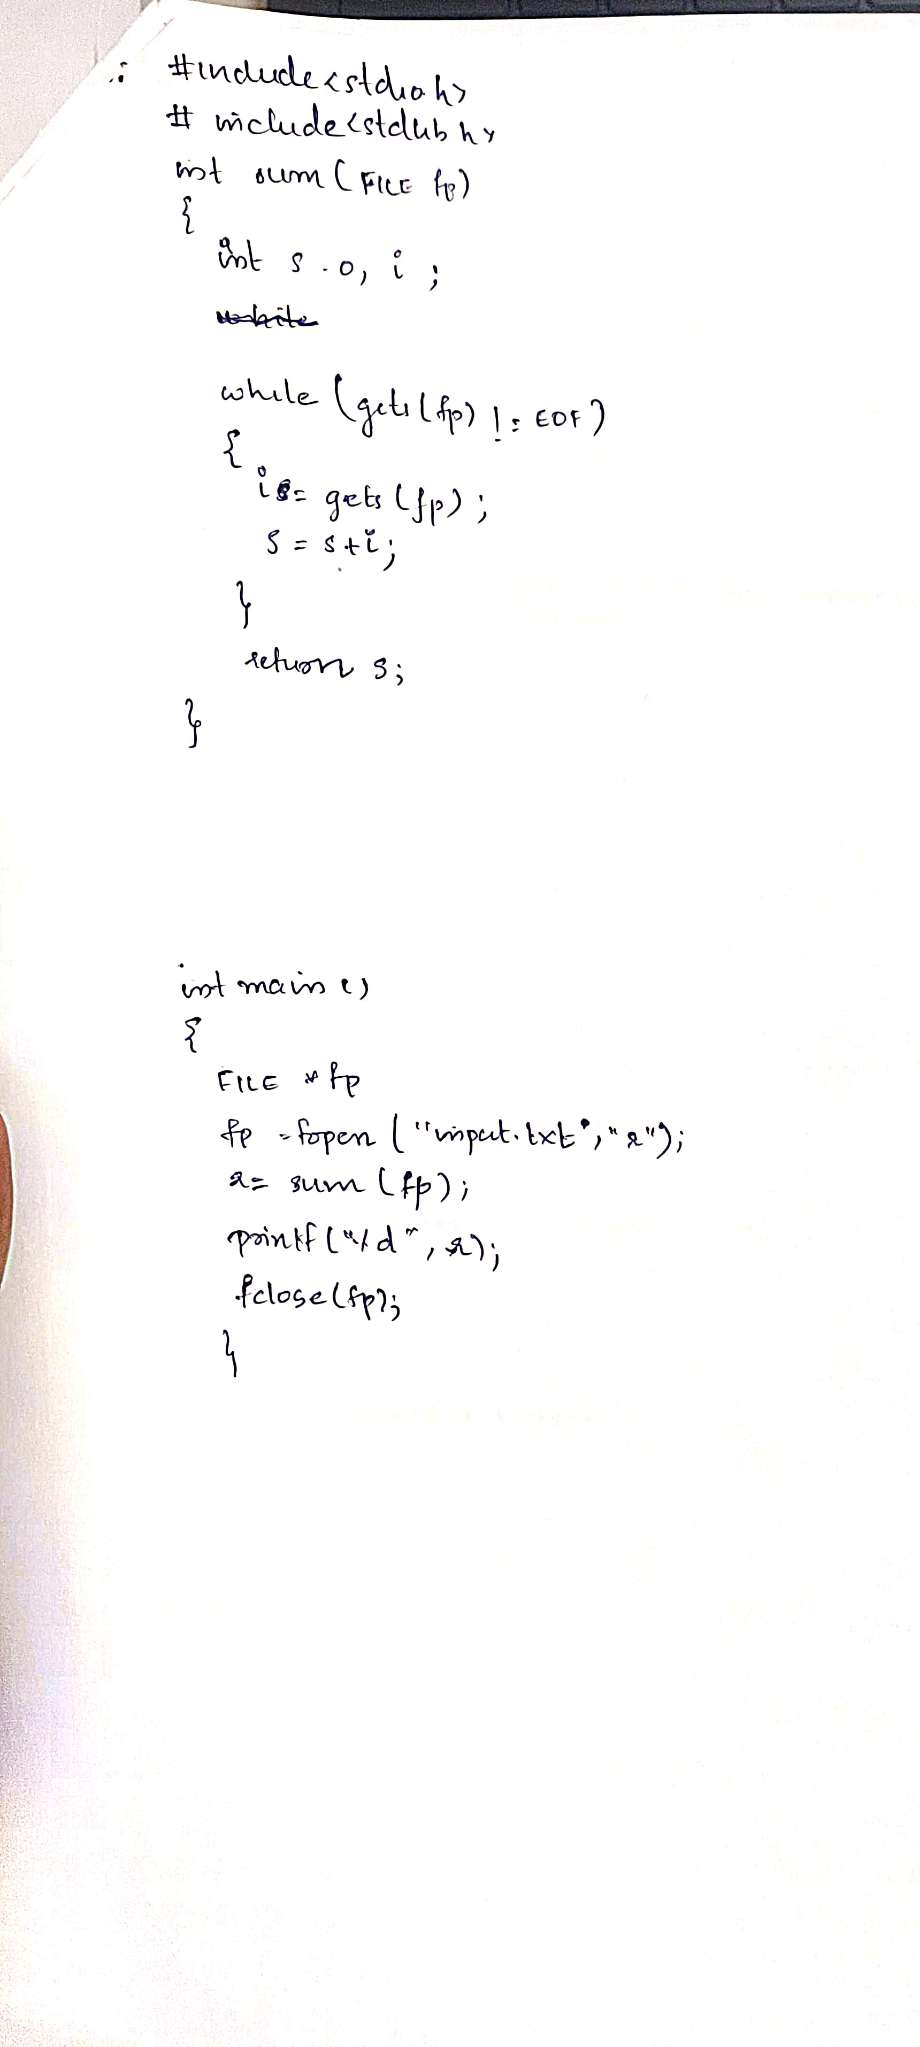 #include<stdio.h>
# include<stdlib.h>
int sum (FILE fp)
{
int s = 0, i ;
while
while (gets(fp) != EOF)
{
i = gets (fp) ;
s = s+i ;
}
return s;
}
int main ()
{
FILE * fp
fp = fopen ("input.txt", "r");
r= sum (fp);
printf ("%d", r);
fclose(fp);
}